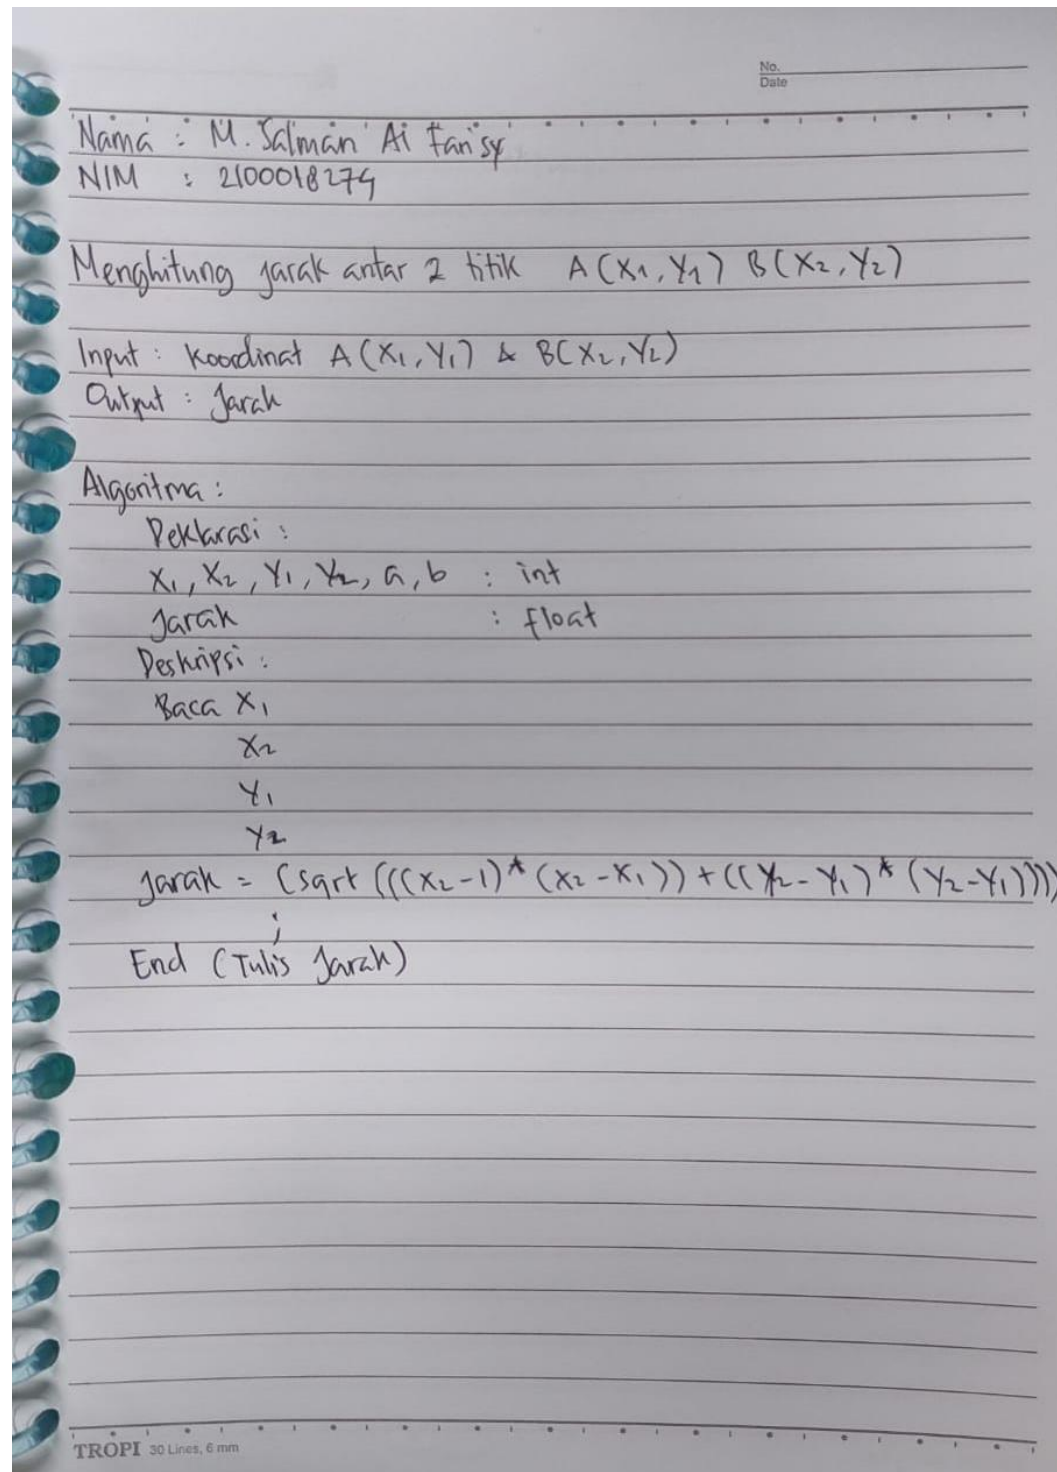 No.
Date
Nama : M. Salman Al Farisy
NIM : 2100018274
Menghitung jarak antar 2 titik A(X1, Y1) B(X2, Y2)
Input : Koordinat A(X1, Y1) & B(X2, Y2)
Output : Jarak
Algoritma :
Deklarasi :
X1, X2, Y1, Y2, a, b : int
Jarak : float
Deskripsi :
Baca X1
X2
Y1
Y2
Jarak = (sqrt (((X2-1)* (X2-X1)) + ((Y2-Y1)* (Y2-Y1))))
;
End (Tulis Jarak)
TROPI 30 Lines, 6 mm